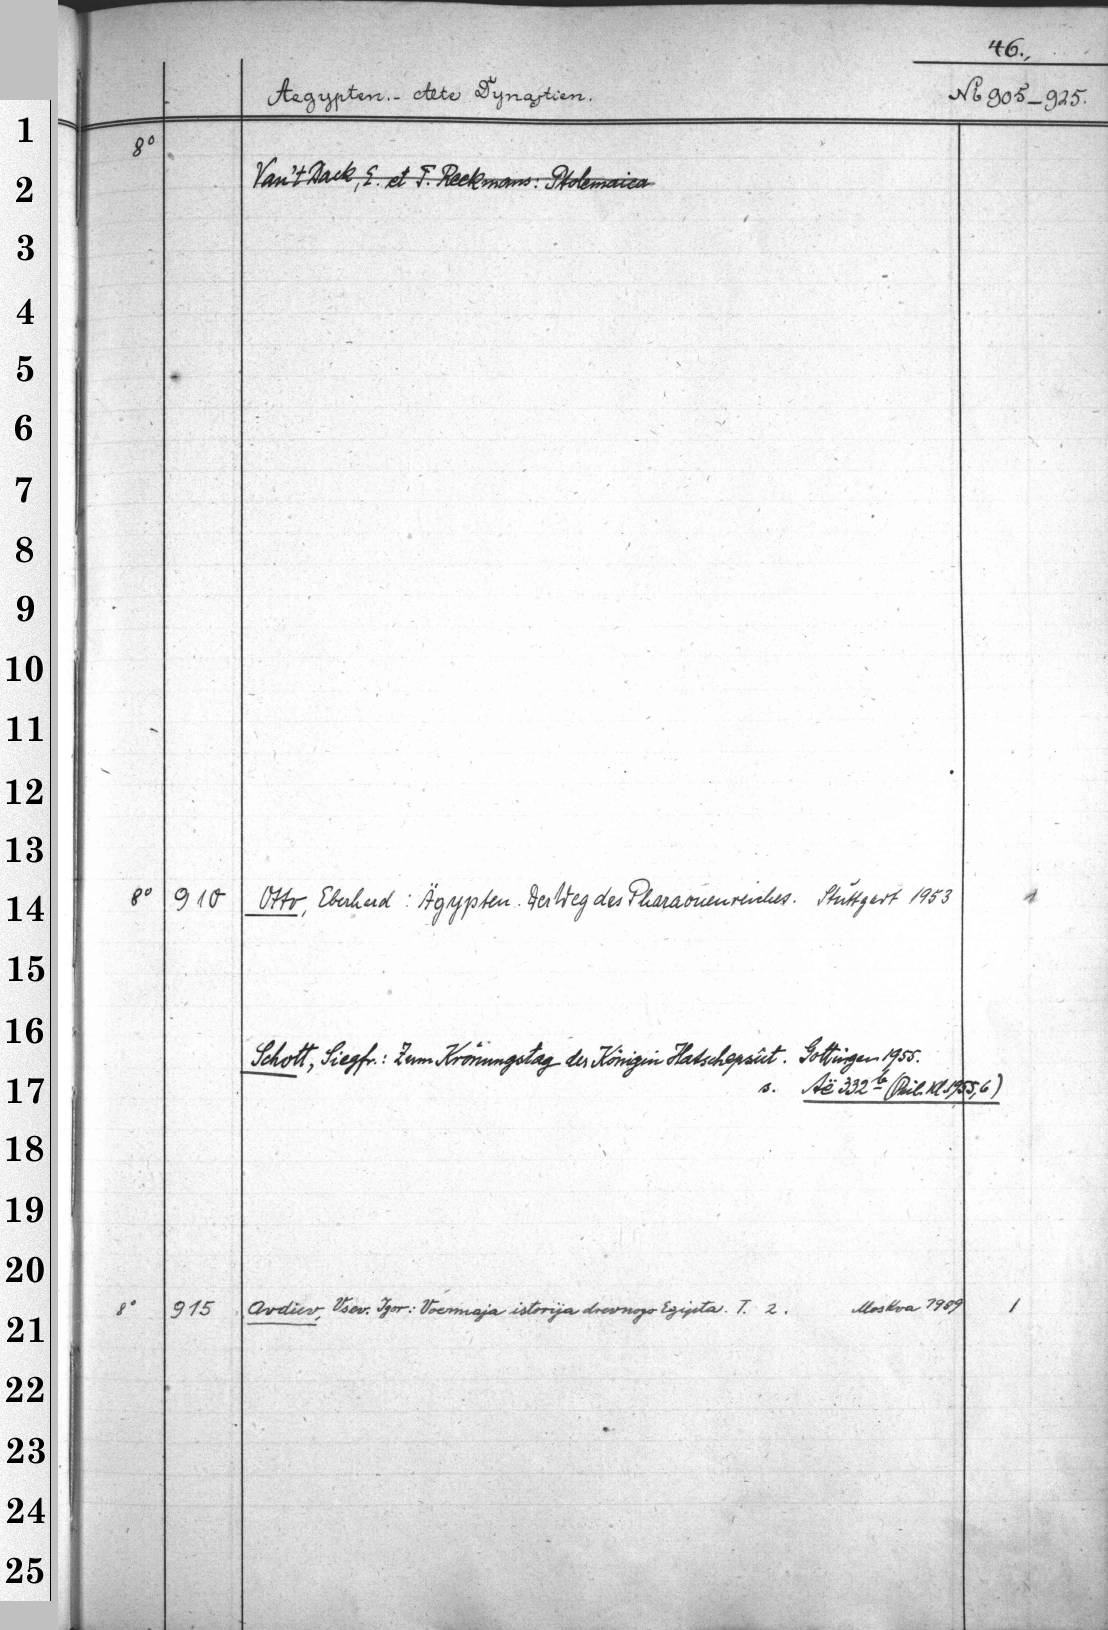 46.
Aegypten.- Alte Dynastien.
№ 905-925.
1
8°
2
Van't Dack, E. et T. Reekmans: Ptolemaica
3
4
5
6
7
8
9
10
11
12
13
14
8° 910 Otto, Eberhard: Ägypten. Der Weg des Pharaonenreiches. Stuttgart 1953 1
15
16
Schott, Siegfr.: Zum Krönungstag der Königin Hatschepsût. Göttingen 1955.
17
s. Aë 332 b (Phil. Kl. 1955,6)
18
19
20
8° 915 Avdiev, Vsev. Igor: Voennaja istorija drevnogo Egipta. T. 2. Moskva 1959 1
21
22
23
24
25